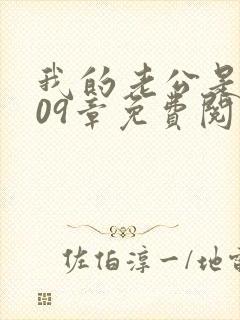 我的老公是
09章免费阅
佐伯淳一/地